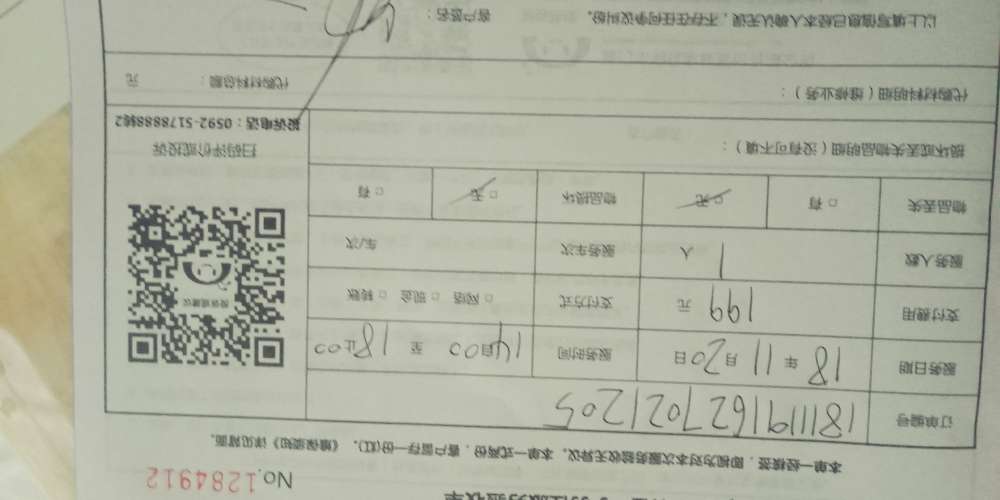 服务验收单
No.1284912
本单一经核签，即视为对本次服务验收无异议。本单一式两份，客户留存一份(红)。《维保须知》详见背面。
订单编号 1811191627021205
服务日期 18 年 11 月 20 日 服务时间 14:00 至 18:00 止
支付费用 199 元 支付方式 □ 网店 □ 现金 □ 转账
服务人数 1 人 服务车次 车/次
物品丢失 □ 有 □ 无 物品损坏 □ 无 □ 有
投诉或建议
扫码评价或投诉
投诉电话：0592-5178888转2
损坏或丢失物品明细（没有可不填）：
代购材料明细（维修业务）： 代购材料总额： 元
以上填写信息已经本人确认无误，不存在任何争议纠纷。 客户签名：